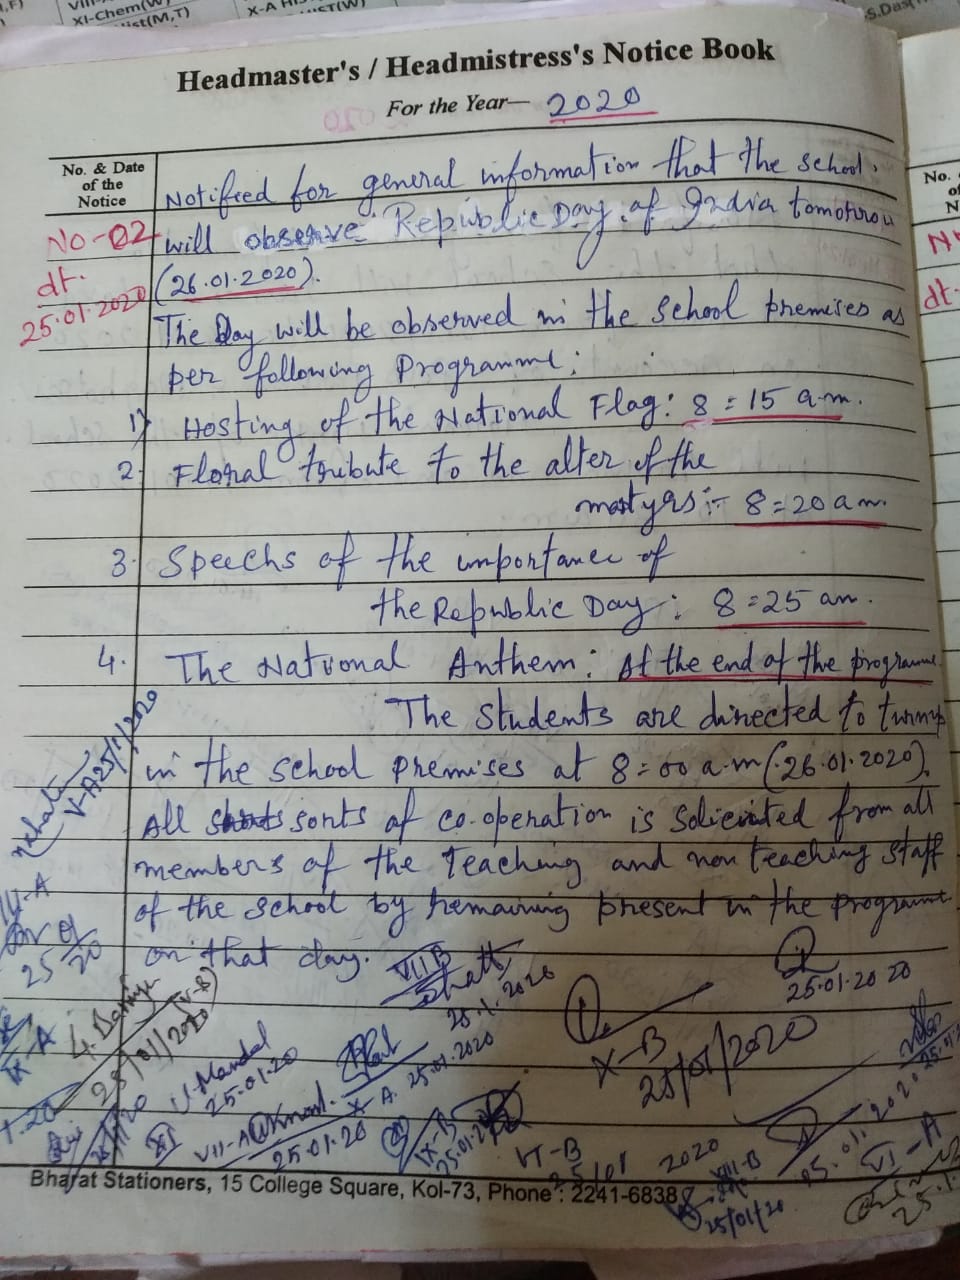 XI-Chem(W)
ist(M,T)
Headmaster's / Headmistress's Notice Book
For the Year— 2020
No. & Date
of the
Notice
No-02
dt.
25.01.2020
Notified for general information that the school
will observe Republic Day of India tomorrow
(26.01.2020).
The Day will be observed in the school premises as
per following Programme:
1) Hosting of the National Flag: 8=15 a.m.
2. Floral tribute to the alter of the
martyrs:- 8=20 am.
3. Speechs of the importance of
the Republic Day: 8=25 am.
4. The National Anthem: At the end of the programme.
The Students are directed to turnup
in the school premises at 8=00 a.m (26.01.2020).
All sorts of co.operation is solicited from all
members of the Teaching and non teaching staff
of the school by remaining present in the programme
on that day.
V-A 25/1/2020
IV-A
25
VII B
25.1.2020
25.01.2020
X-B
25/01/2020
IX-A
(V-B)
25/01/2020
U. Mandal
25.01.20
XI
VII-A
25.01.20
X-A. 25.01.2020
IX-B
25.01.2
VI-B
25/01 2020
VIII-B
25/01/20
25.01.2020
VI-A
Bharat Stationers, 15 College Square, Kol-73, Phone : 2241-6838
No.
dt.